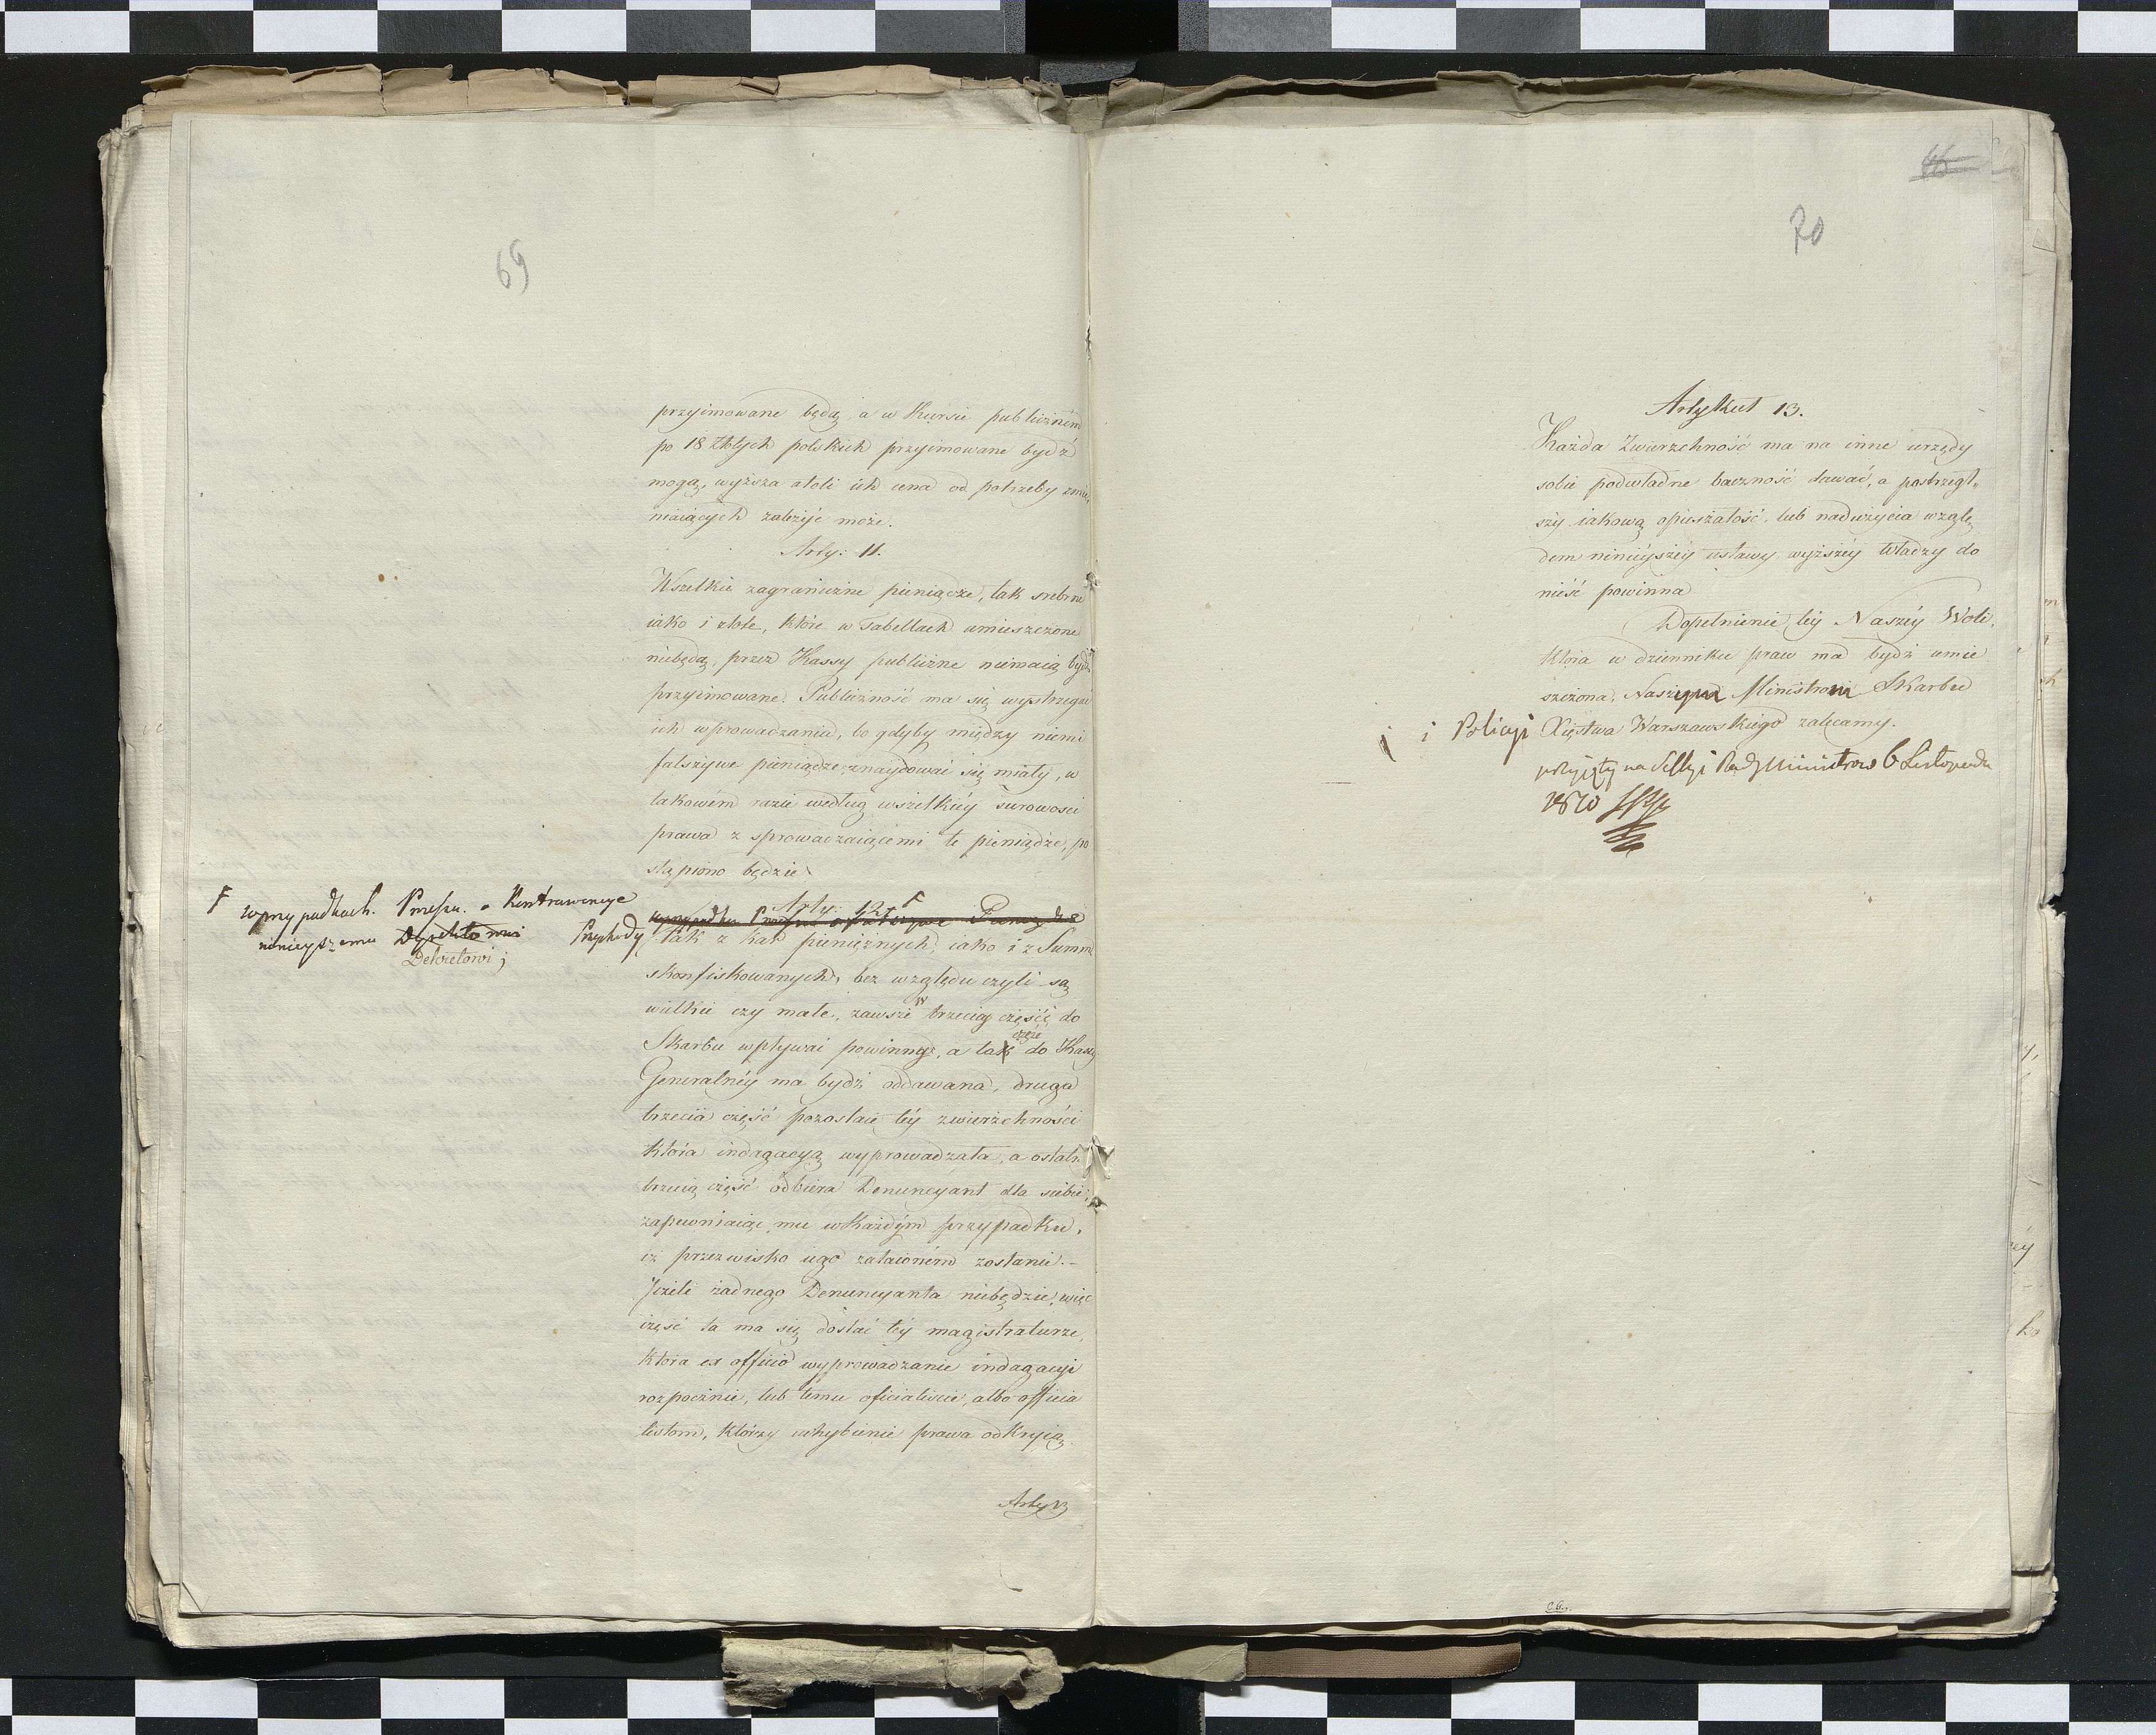 69
przyimowane będą a w Kursie publicznem
po 18 Złotych polskich przyimowane bydź
mogą, wyższa atoli ich cena od potrzeby zmie„
niaiących zależyć może.
Arty: 11.
Wszelkie zagraniczne pieniądze, tak srebrne
iako i złote, które w Tabellach umieszczone
niebędą, przez Kassy publiczne niemaią bydź
przyimowane. Publiczność ma się wystrzegać
ich wprowadzania, bo gdyby między niemi
fałszywe pieniądze znaydować się miały, w
takowém razie według wszelkiéy surowości
prawa z sprowadzaiącemi te pieniądze, po
stąpiono będzie
Arty. 12 F
F w przypadkach Kontrawencyi
ninieyszemu
Dekretowi;
Tak z kar pieniężnych, iako i z Summ
skonfiskowanych, bez względu czyli są
wielkie czy małe, zawsze trzecia część do
Skarbu wpływać powinna, a ta część do Kassy
Generalnéy ma bydź oddawana, druga
trzecia część pozostaie téy zwierzchności
która indagacyą wyprowadzała, a ostatn.
trzecią część odbiera Denuncyant dla siebie,
zapewniaiąc mu w każdym przypadku,
iż przezwisko iego zataioném zostanie.–
Jeżeli żadnego Denuncyanta niebędzie, więc
część ta ma się dostać téy magistraturze,
która ex officio wyprowadzanie indagacyi
rozpocznie, lub temu oficialiście, albo officia
listom, którzy uchybienie prawa odkryią
Arty 13
66
70
Artykuł 13.
Każda Zwierzchność ma na inne urzędy
sobie podwładne baczność dawać, a postrzegł„
szy iakową opieszałość, lub nadużycia wzglę
dem ninieyszéy ustawy wyższéy Władzy do
nieść powinna
Dopełnienie téy Naszéy Woli,
która w dzienniku praw ma bydź umie
szczona, Naszym Ministrom Skarbu
i Policyi Xięstwa Warszawskiego zalecamy.
przyięty na Sessyi Rady Ministrow 6 Listopada
1810